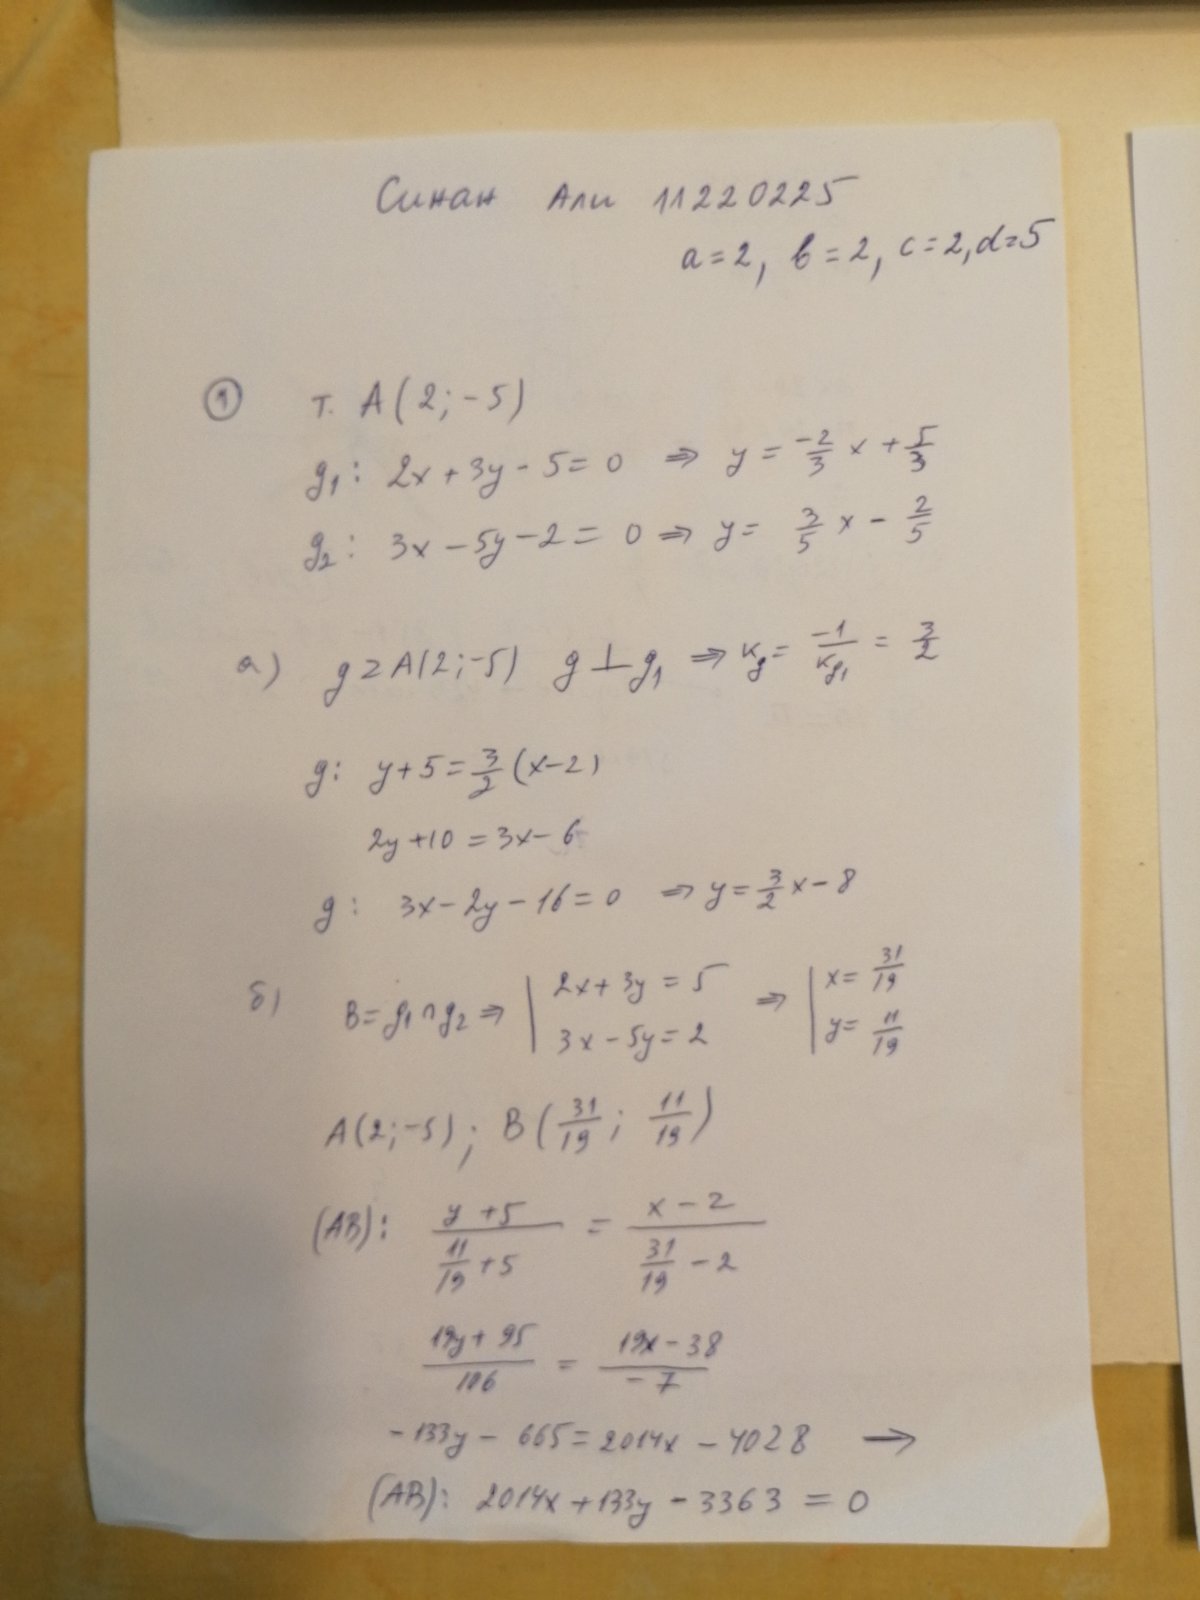 Синан Али 11220225
a=2, b=2, c=2, d=5
① т. A(2;-5)
g₁: 2x+3y-5=0 ⇒ y=-2/3 x+5/3
g₂: 3x-5y-2=0 ⇒ y= 3/5 x-2/5
а) g Z A(2;-5) g⊥g₁ ⇒ Kg=-1/Kg₁=3/2
g: y+5=3/2(x-2)
2y+10=3x-6
g: 3x-2y-16=0 ⇒ y=3/2x-8
б) B=g₁∩g₂ ⇒ | 2x+3y=5 ⇒ | x=31/19
3x-5y=2 y=11/19
A(2;-5); B(31/19; 11/19)
(AB): y+5 / 11/19+5 = x-2 / 31/19-2
19y+95 / 106 = 19x-38 / -7
-133y-665=2014x-4028 →
(AB): 2014x+133y-3363=0